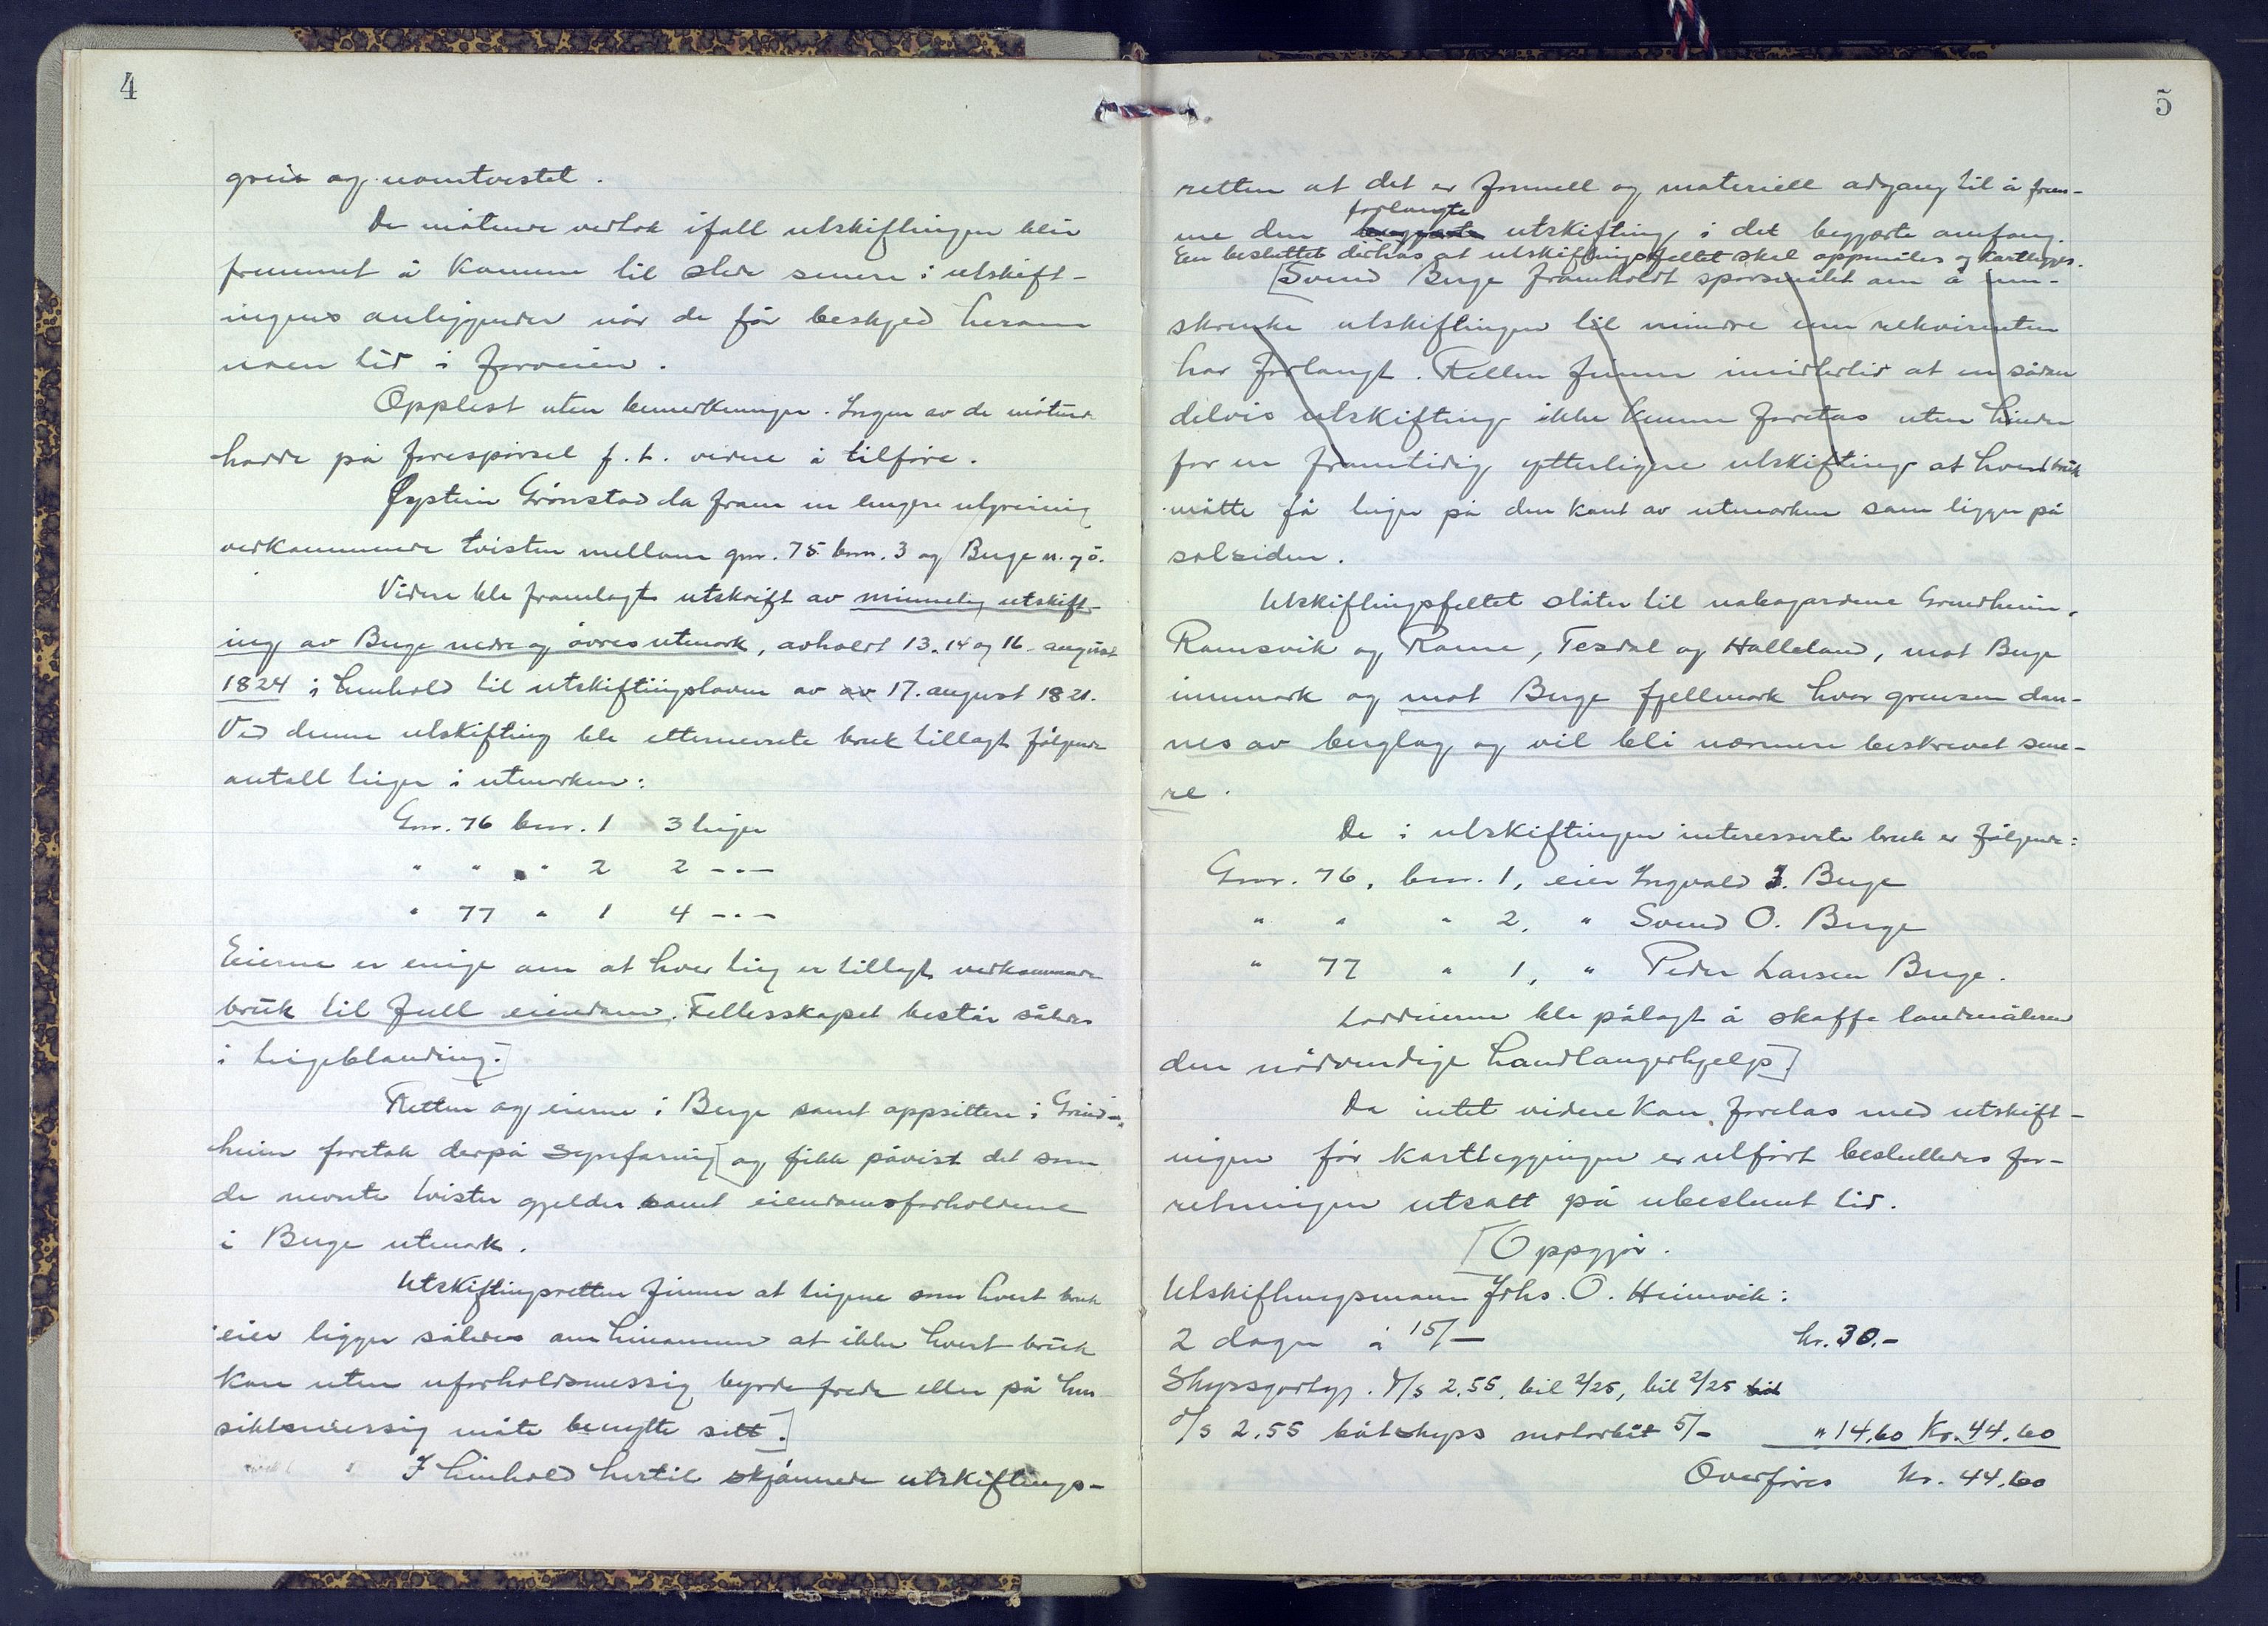 4
greit og uomtvistet.
De møtende vedtok ifall utskiftingen blir
fremmet å komme til stede senere i utskift-
ingens anliggender når de får beskjed herom
noen tid i forveien.
Opplest uten bemerkninger. Ingen av de møtende
hadde på forespørsel f.t. videre å tilføre.
Øystein Grønstad la fram en lengere utgreining
vedkommende tvisten mellom gnr. 75 bnr. 3 og Berge n. og ö.
Videre ble framlagt utskrift av minnelig utskift-
ing av Berge nedre og øvres utmark, avholdt 13. 14 og 16. august
1824 i henhold til utskiftingsloven av av 17. august 1821.
Ved denne utskifting ble etternevnte bruk tillagt følgende
antall teiger i utmarken:
Gnr. 76 bnr. 1 3 teiger
" " " 2 2 -"-
" 77 " 1 4 -"-
Eierne er enige om at hver teig er tillagt vedkommende
bruk til full eiendom. Fellesskapet består således
i teigeblanding.]
Retten og eierne i Berge samt oppsittere i Grind-
heim foretok derpå synfaring [og fikk påvist det som
de nevnte tvister gjelder samt eiendomsforholdene
i Berge utmark.
Utskiftingsretten finner at teigene som hvert bruk
eier ligger således om hinannen at ikke hvert bruk
kan uten uforholdsmessig byrde frede eller på hen-
siktsmessig måte benytte sitt.]
I henhold hertil skjønnede utskiftings-
5
retten at det er formell og materiell adgang til å frem-
forlangte
me den begjærte utskifting i det begjærte omfang.
Een besluttet derhos at utskiftingsfeltet skal oppmåles og kartlegges.
[Svend Berge framholdt spørsmålet om å inn-
skrenke utskiftingen til mindre enn rekvirenten
har forlangt. Retten finner imidlertid at en sådan
delvis utskifting ikke kunne foretas uten hinder
for en framtidig ytterligere utskifting at hvert bruk
måtte få teiger på den kant av utmarken som ligger på
solsiden.
Utskiftingsfeltet støter til nabogardene Grindheim,
Ramsvik og Ramme, Tesdal og Halleland, mot Berge
innmark og mot Berge fjellmark hvor grensen dan-
nes av berglag og vil bli nærmere beskrevet sene-
re.
De i utskiftingen interesserte bruk er følgende:
Gnr. 76, bnr. 1, eier Ingvald J. Berge
" " " 2, " Svend O. Berge
" 77 " 1, " Peder Larsen Berge.
Lodeierne ble pålagt å skaffe landmåleren
den nødvendige handlangerhjelp.]
Da intet videre kan foretas med utskift-
ningen før kartleggingen er utført besluttedes for-
retningen utsatt på ubestemt tid.
[Oppgjør.
Utskiftningsmann Johs. O. Heimvik:
2 dager à 15/- kr. 30.-
Skyssgodtgj. D/s 2.55, bil 2/25, bil 2/25 bil
D/s 2.55 båtskyss motorbåt 5/- " 14.60 Kr. 44.60
Overføres kr. 44.60